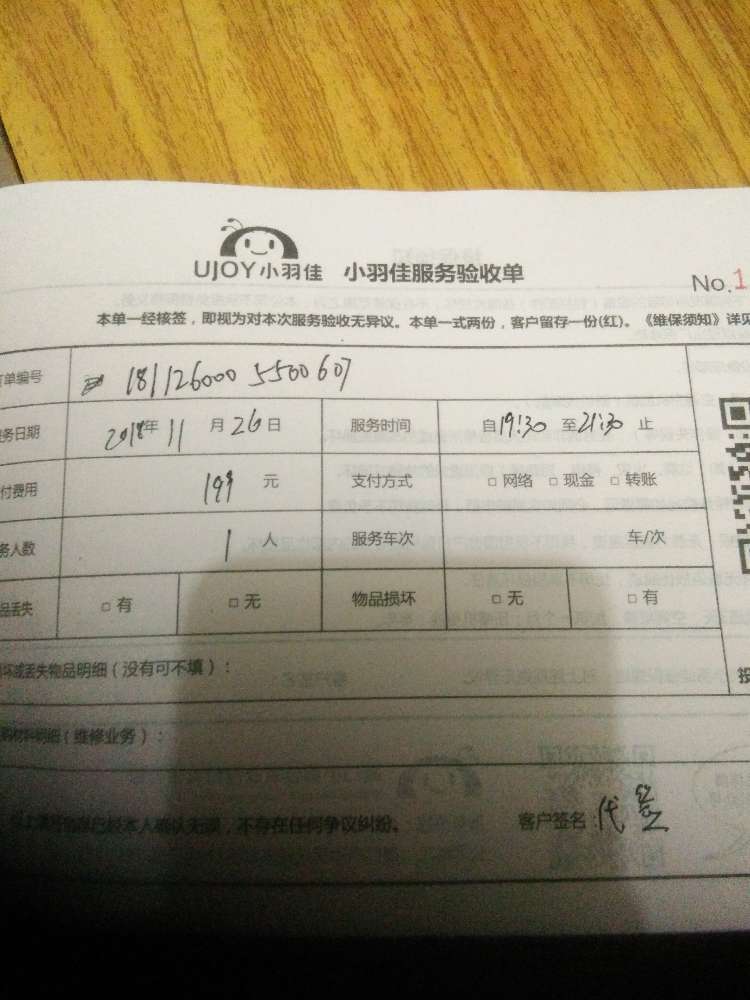 UJOY小羽佳 小羽佳服务验收单
No.1
本单一经核签，即视为对本次服务验收无异议。本单一式两份，客户留存一份(红)。《维保须知》详见
单编号 181126000 5500607
务日期 2018年 11 月 26 日 服务时间 自19:30 至21:30 止
付费用 199 元 支付方式 □ 网络 □ 现金 □ 转账
务人数 1 人 服务车次 车/次
品丢失 □ 有 □ 无 物品损坏 □ 无 □ 有
坏或丢失物品明细（没有可不填）：
明细（维修业务）：
本人确认无误，不存在任何争议纠纷。 客户签名：代签